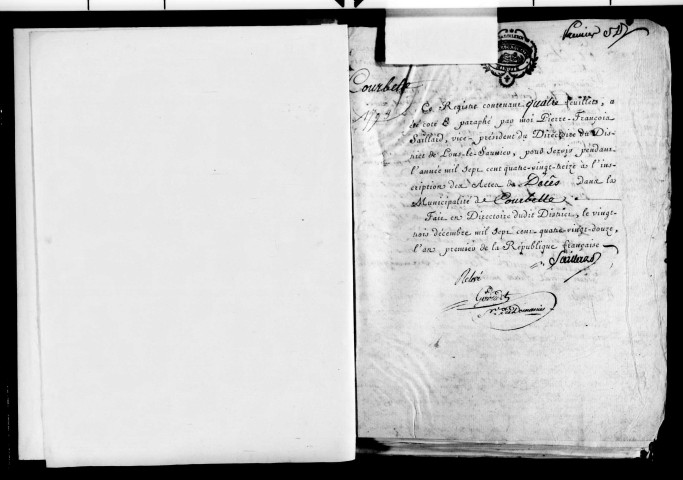 Premier
Courbette
1793
Ce Registre contenant quatre feuillets, a
été coté & paraphé par moi Pierre-François
Saillard, vice-président du Directoire du Dis-
trict de Lons-le-Saunier, pour servir pendant
l'année mil sept cent quatre-vingt-treize à l'ins-
cription des Actes de Décès dans la
Municipalité de Courbette
Fait en Directoire dudit District, le vingt-
trois décembre mil sept cent quatre-vingt-douze,
l'an premier de la République française
Saillard